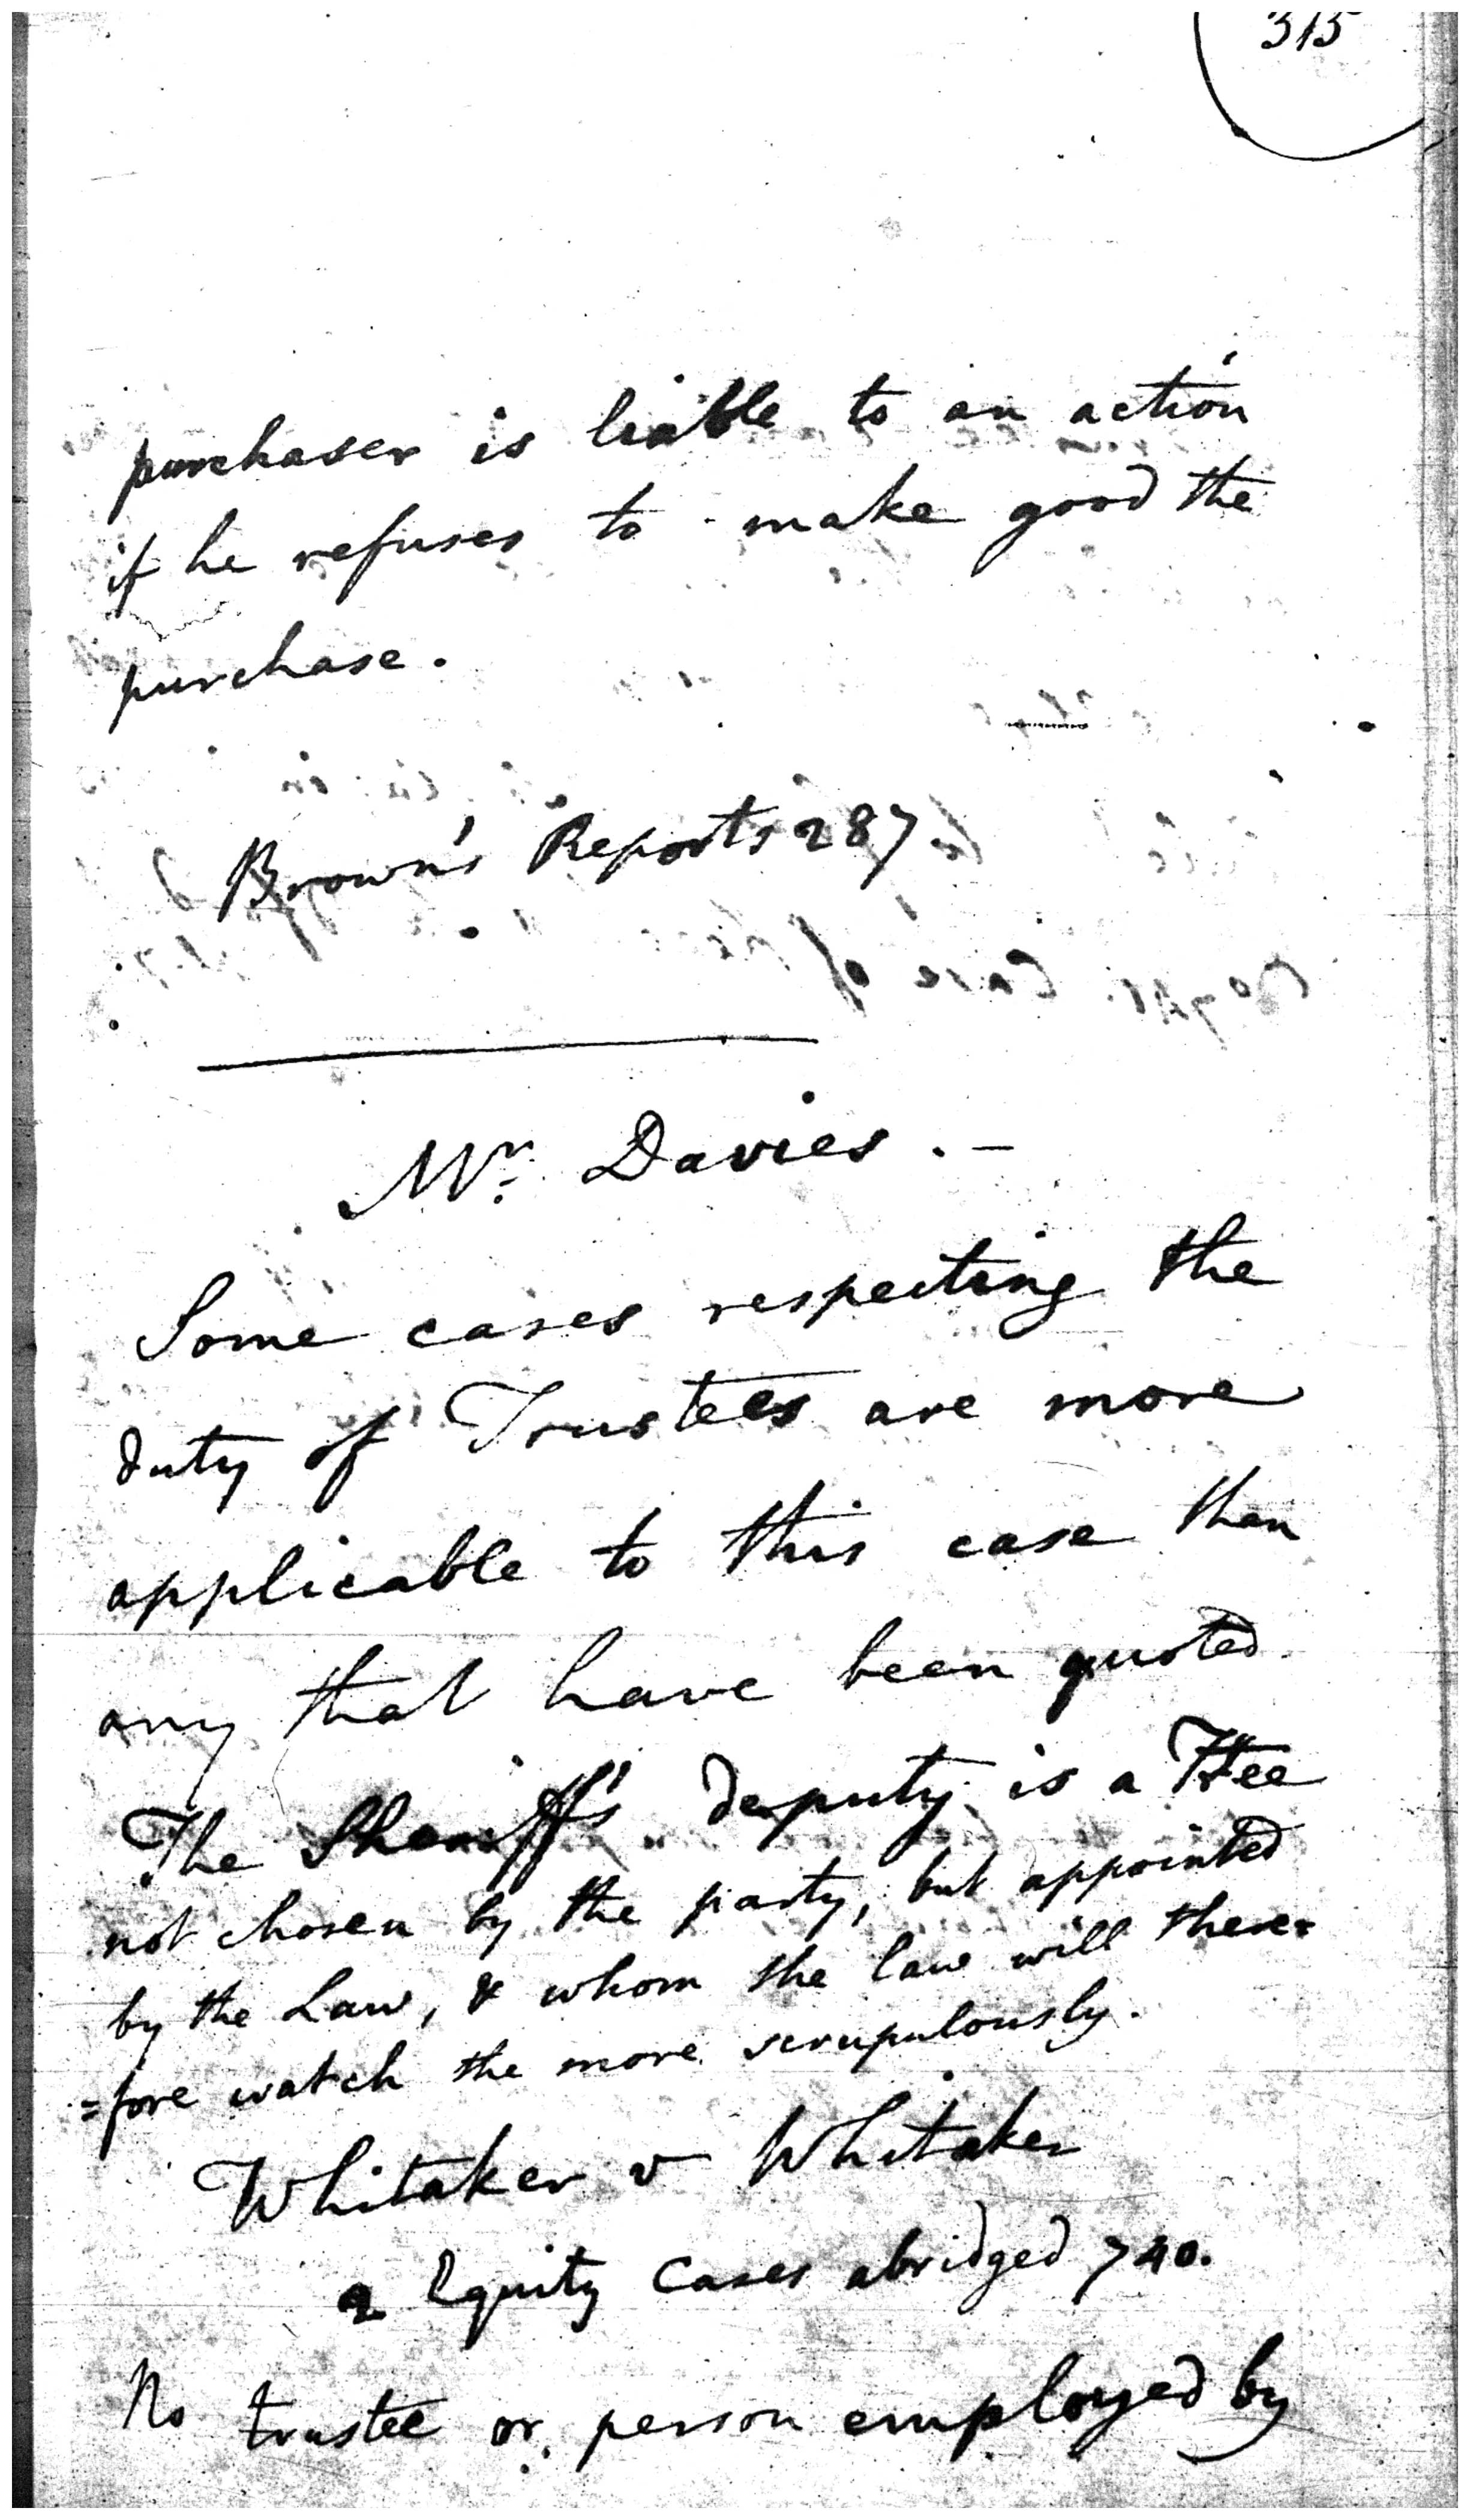 315
purchaser is liable to an action
if he refuses to make good the
purchase.
Brown's Reports 287
Mr. Davies. -
Some cases respecting the
duty of Trustees are more
applicable to this case than
any that have been quoted
The Sheriff's deputy is a Ttee
not chosen by the party, but appointed
by the Law, & whom the law will there=
=fore watch the more scrupulously.
Whitaker v Whitaker
2 Equity Cases abridged 740.
No trustee or person employed by